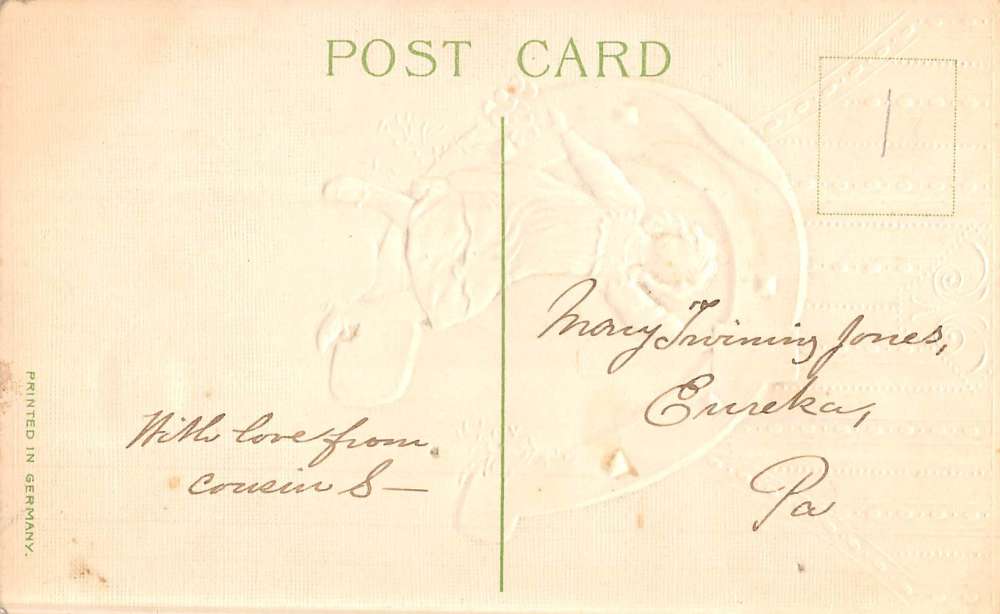 POST CARD
1
With love from
cousin S—
Mary Twining Jones,
Eureka,
Pa
PRINTED IN GERMANY.